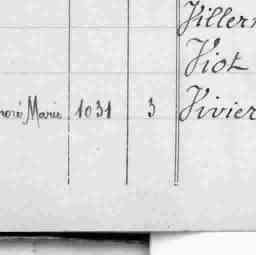 Viller
Viot
noré Marie 1031 3 Vivier